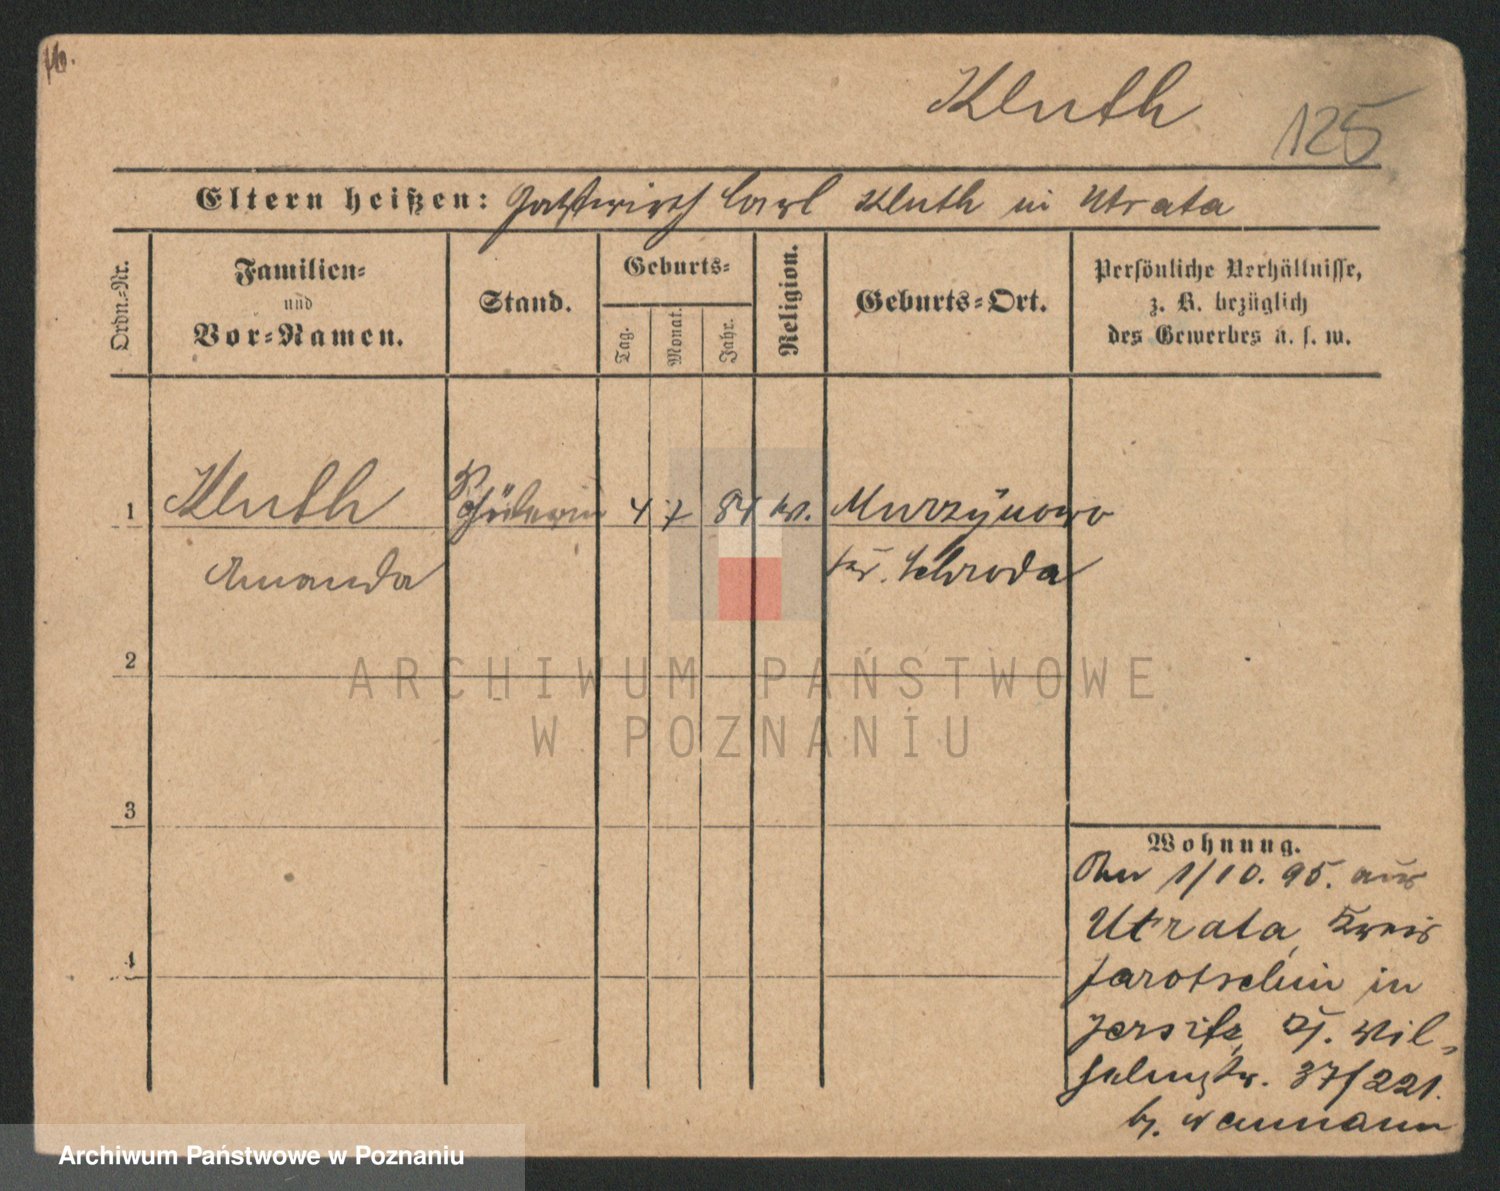 16.
Kluth
125
Eltern heißen: Gastwirth Carl Kluth in Utrata
Ordn.-Nr.
Familien- und Vor-Namen.
Stand.
Geburts-
Tag.
Monat.
Jahr.
Religion.
Geburts-Ort.
Persönliche Verhältnisse,
z. B. bezüglich
des Gewerbes u. s. w.
1 Kluth Schülerin 4 7 84 ev. Murzynowo
Amanda Kr. Schroda
2
3
4
ARCHIWUM PAŃSTWOWE
W POZNANIU
Wohnung.
1/10. 95. aus
Utrata, Kreis
Jarotschin in
Jersitz, Wil-
helmstr. 37/221.
b. Neumann
Archiwum Państwowe w Poznaniu